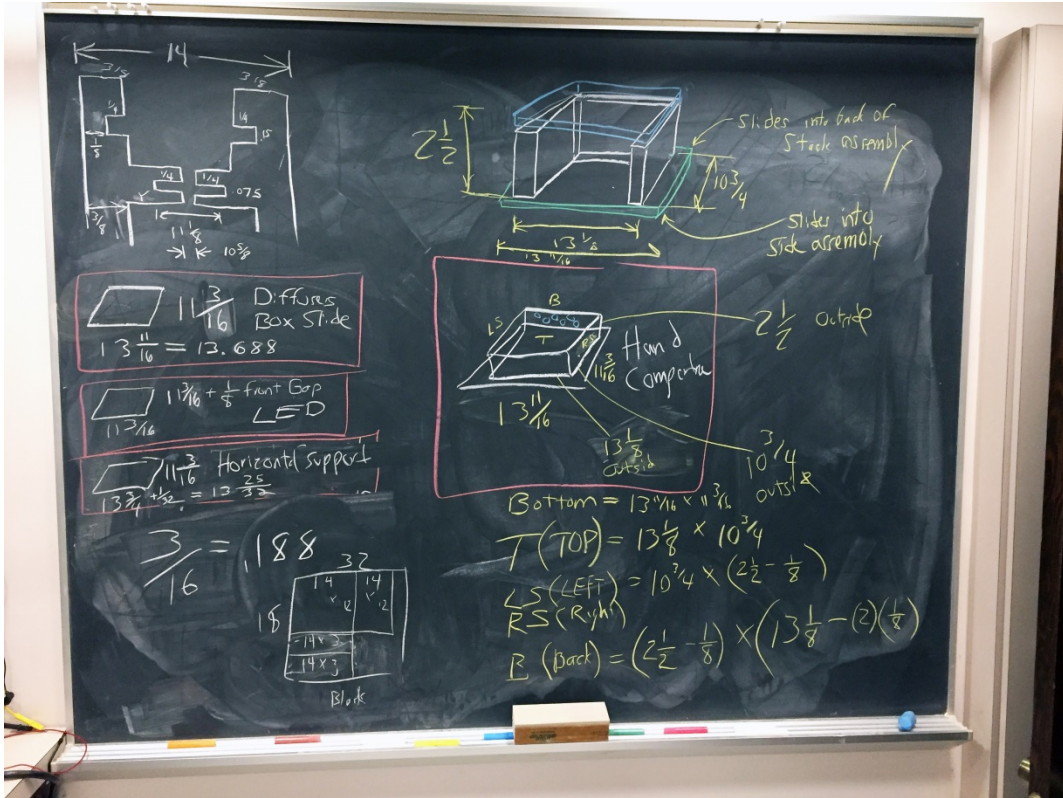 14
3/8
3/8
1/4
1/4
.15
1/8
1/4
1/4
.075
3/8
11 1/8
10 5/8
11 3/16 Diffuser
Box Slide
13 11/16 = 13.688
11 3/16 + 1/8 front Gap
LED
11 3/16
11 3/16 Horizontal Support
13 3/4 + 1/32 = 13 25/32
3/16 = .188
32
14 x 12
14 x 12
18
14 x 3
14 x 3
Block
2 1/2
10 3/4
13 1/8
13 11/16
Slides into back of
Stack assembly
Slides into
Side assembly
B
LS
T
RS
11 3/16
Hand
13 11/16
2 1/2 outside
13 1/8
outsid
10 3/4
outside
Bottom = 13 11/16 x 11 3/16
T (TOP) = 13 1/8 x 10 3/4
LS (LEFT) = 10 3/4 x (2 1/2 - 1/8)
RS (Right)
B (Back) = (2 1/2 - 1/8) x (13 1/8 - (2)(1/8)